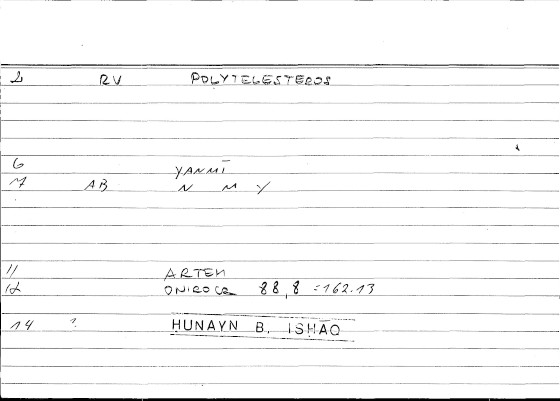 2 RV POLYTELESTEROS
6 YANMĪ
7 AB N M Y
11 ARTEM
12 ONIROCR 88,8 =162.13
14 ? HUNAYN B. ISHĀQ